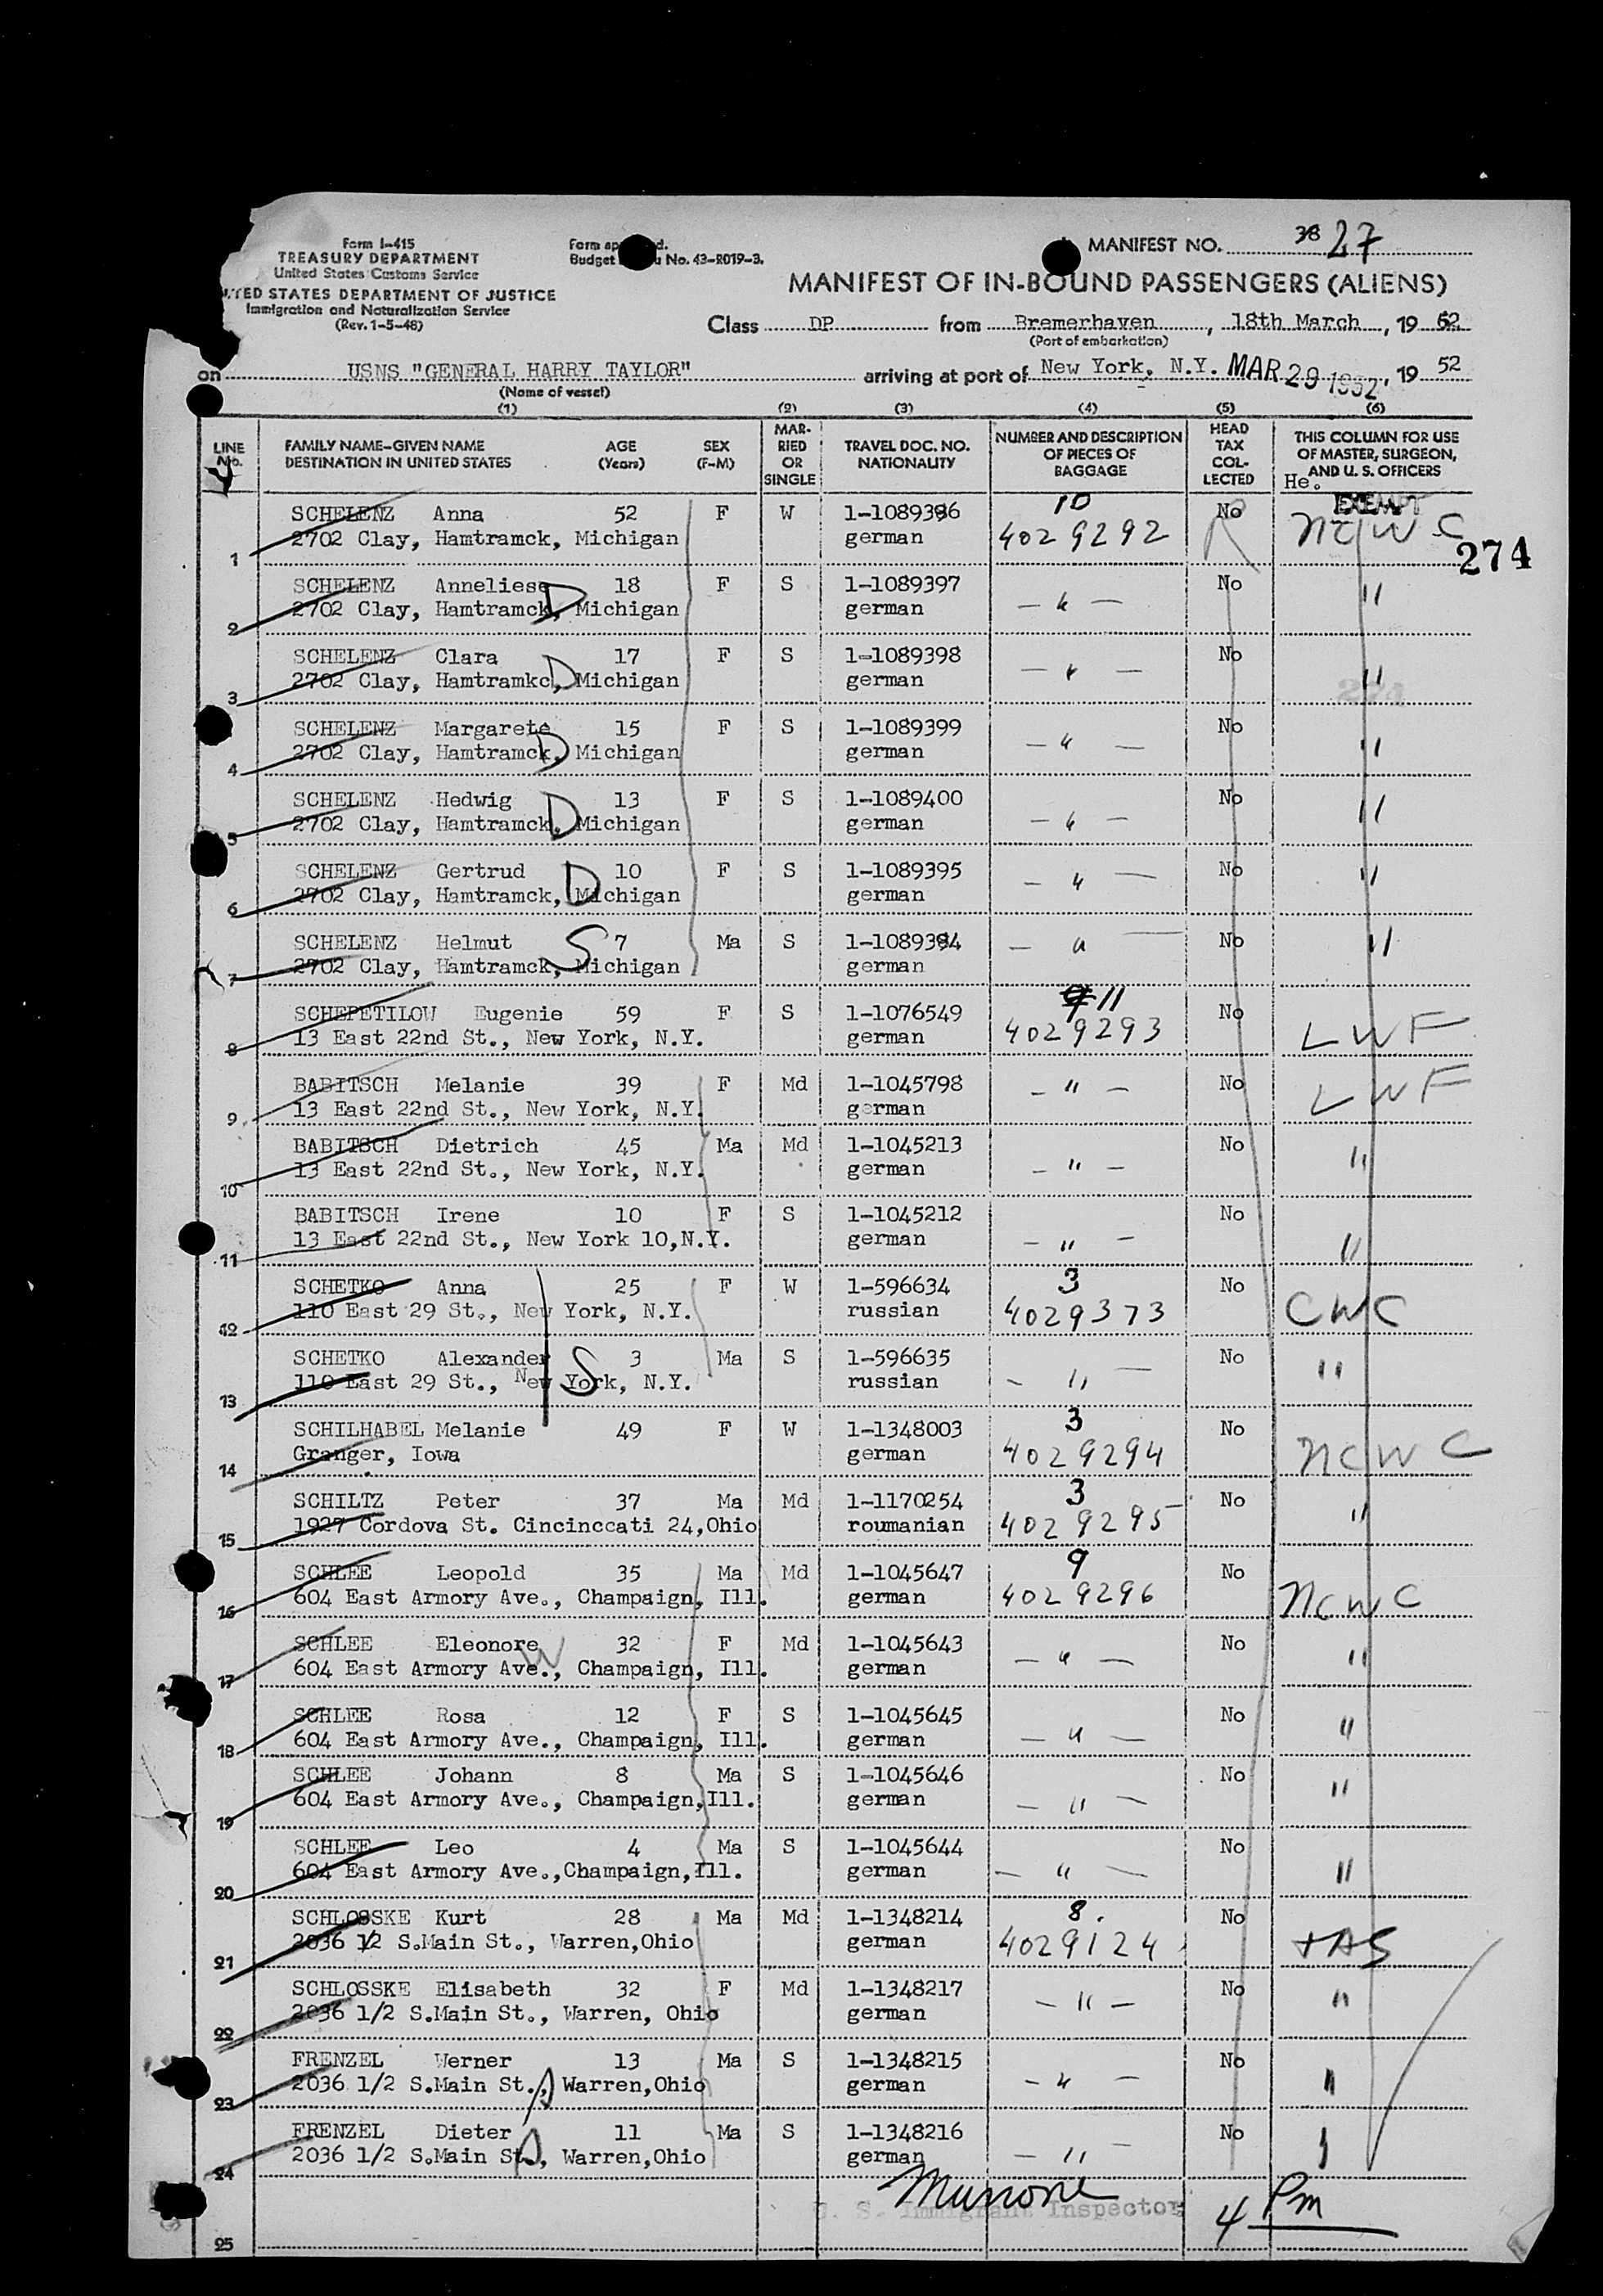 Form I-415
TREASURY DEPARTMENT
United States Customs Service
UNITED STATES DEPARTMENT OF JUSTICE
Immigration and Naturalization Service
(Rev. 1-5-48)
Form approved.
Budget Bureau No. 43-R019-3.
MANIFEST NO. 38 27
MANIFEST OF IN-BOUND PASSENGERS (ALIENS)
Class DP from Bremerhaven, 18th March, 19 52
(Port of embarkation)
on USNS "GENERAL HARRY TAYLOR" arriving at port of New York, N.Y. MAR 29 1952, 19 52
(Name of vessel)
(1) (2) (3) (4) (5) (6)
LINE No. FAMILY NAME-GIVEN NAME DESTINATION IN UNITED STATES AGE (Years) SEX (F-M) MAR-RIED OR SINGLE TRAVEL DOC. NO. NATIONALITY NUMBER AND DESCRIPTION OF PIECES OF BAGGAGE HEAD TAX COL-LECTED THIS COLUMN FOR USE OF MASTER, SURGEON, AND U. S. OFFICERS
He.
EXEMPT
274
1 SCHELENZ Anna 52 F W 1-1089396 10 No NCWC
2702 Clay, Hamtramck, Michigan german 4029292
2 SCHELENZ Anneliese D 18 F S 1-1089397 No "
2702 Clay, Hamtramck, Michigan german — " —
3 SCHELENZ Clara D 17 F S 1-1089398 No "
2702 Clay, Hamtramkc, Michigan german — " —
4 SCHELENZ Margarete D 15 F S 1-1089399 No "
2702 Clay, Hamtramck, Michigan german — " —
5 SCHELENZ Hedwig D 13 F S 1-1089400 No "
2702 Clay, Hamtramck, Michigan german — " —
6 SCHELENZ Gertrud D 10 F S 1-1089395 No "
2702 Clay, Hamtramck, Michigan german — " —
7 SCHELENZ Helmut S 7 Ma S 1-1089394 — " — No "
2702 Clay, Hamtramck, Michigan german
8 SCHEPETILOW Eugenie 59 F S 1-1076549 11 No LWF
13 East 22nd St., New York, N.Y. german 4029293
9 BABITSCH Melanie 39 F Md 1-1045798 — " — No LWF
13 East 22nd St., New York, N.Y. german
10 BABITSCH Dietrich 45 Ma Md 1-1045213 No "
13 East 22nd St., New York, N.Y. german — " —
11 BABITSCH Irene 10 F S 1-1045212 No "
13 East 22nd St., New York 10,N.Y. german — " —
12 SCHETKO Anna 25 F W 1-596634 3 No CWC
110 East 29 St., New York, N.Y. russian 4029373
13 SCHETKO Alexander S 3 Ma S 1-596635 No "
110 East 29 St., New York, N.Y. russian — " —
14 SCHILHABEL Melanie 49 F W 1-1348003 3 No NCWC
Granger, Iowa german 4029294
15 SCHILTZ Peter 37 Ma Md 1-1170254 3 No "
1927 Cordova St. Cincinccati 24,Ohio roumanian 4029295
16 SCHLEE Leopold 35 Ma Md 1-1045647 9 No NCWC
604 East Armory Ave., Champaign, Ill. german 4029296
17 SCHLEE Eleonore W 32 F Md 1-1045643 No "
604 East Armory Ave., Champaign, Ill. german — " —
18 SCHLEE Rosa 12 F S 1-1045645 No "
604 East Armory Ave., Champaign, Ill. german — " —
19 SCHLEE Johann 8 Ma S 1-1045646 No "
604 East Armory Ave., Champaign,Ill. german — " —
20 SCHLEE Leo 4 Ma S 1-1045644 No "
604 East Armory Ave.,Champaign,Ill. german — " —
21 SCHLOSSKE Kurt 28 Ma Md 1-1348214 8 No
2036 1/2 S.Main St., Warren,Ohio german 4029124
22 SCHLOSSKE Elisabeth 32 F Md 1-1348217 No "
2036 1/2 S.Main St., Warren, Ohio german — " —
23 FRENZEL Werner 13 Ma S 1-1348215 No "
2036 1/2 S.Main St., Warren,Ohio german — " —
24 FRENZEL Dieter 11 Ma S 1-1348216 No "
2036 1/2 S.Main St., Warren,Ohio german — " —
U. S. Immigrant Inspector 4 Pm
25